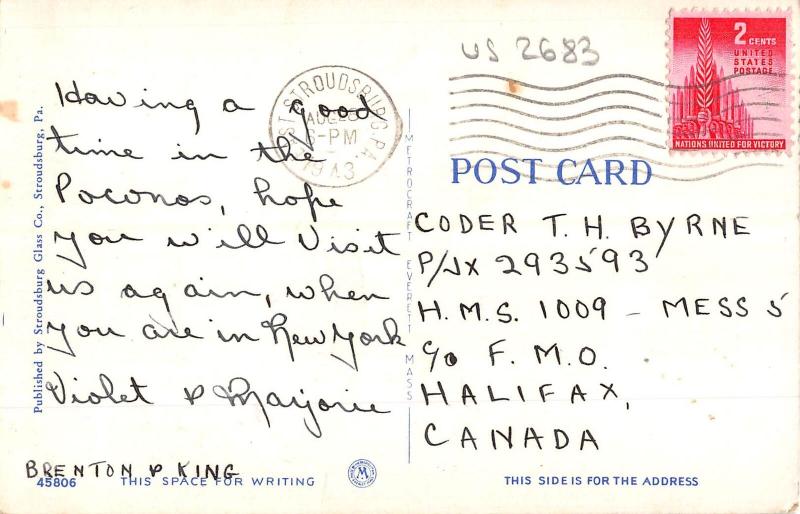 US 2683
2 CENTS
UNITED
STATES
POSTAGE
NATIONS UNITED FOR VICTORY
ST STROUDSBURG, PA.
AUG
6-PM
1943
POST CARD
Having a good
time in the
Poconos, hope
you will visit
us again, when
you are in New York
Violet & Marjorie
BRENTON & KING
CODER T. H. BYRNE
P/JX 293593
H.M.S. 1009 - MESS 5
c/o F.M.O.
HALIFAX,
CANADA
Published by Stroudsburg Glass Co., Stroudsburg, Pa.
METROCRAFT EVERETT MASS
45806 THIS SPACE FOR WRITING
M
THIS SIDE IS FOR THE ADDRESS